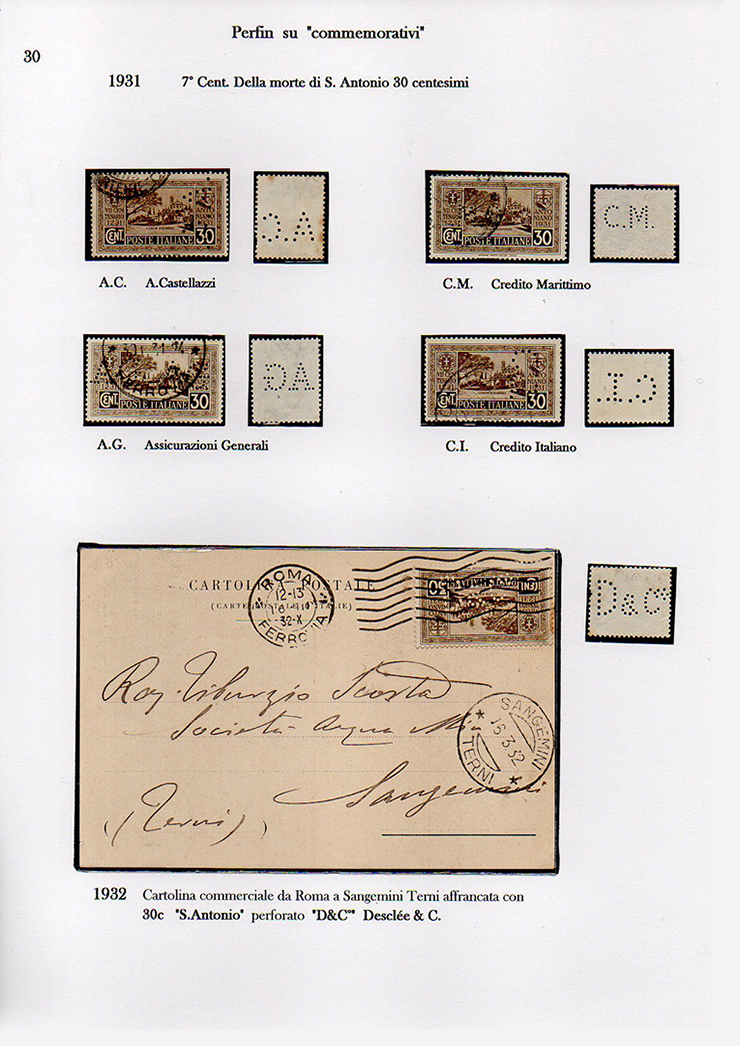 Perfin su "commemorativi"
30
1931 7° Cent. Della morte di S. Antonio 30 centesimi
CENT. POSTE ITALIANE 30
A.C.
CENT. POSTE ITALIANE 30
C.M.
A.C. A.Castellazzi
C.M. Credito Marittimo
FERROVIA
CENT. POSTE ITALIANE 30
A.G.
CENT. POSTE ITALIANE 30
C.I.
A.G. Assicurazioni Generali
C.I. Credito Italiano
CARTOLINA POSTALE
(CARTE POSTALE D'ITALIE)
ROMA
12-13
32-X
FERROVIA
30 CENT
D & Cº
Rag. Tiburzio Scosta
Società Acqua
Sangemini
(Terni)
SANGEMINI
16.3.32
TERNI
1932 Cartolina commerciale da Roma a Sangemini Terni affrancata con
30c "S.Antonio" perforato "D&C°" Desclée & C.